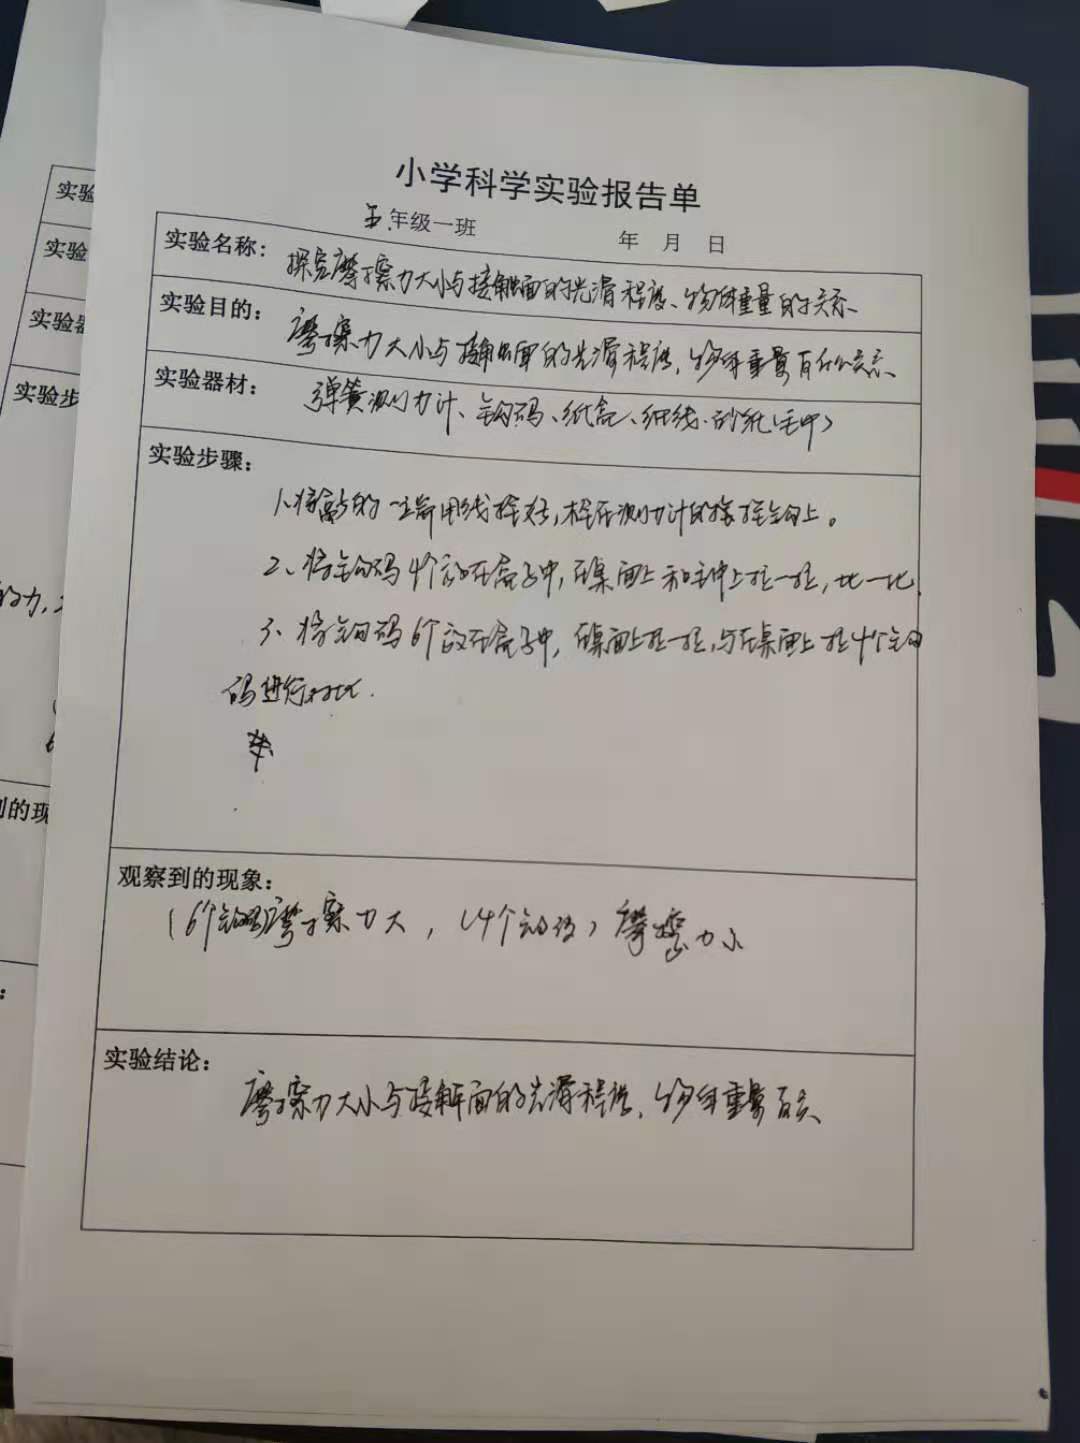 小学科学实验报告单
五年级一班 年 月 日
实验名称: 探究摩擦力大小与接触面的光滑程度、物体重量的关系
实验目的: 摩擦力大小与接触面的光滑程度,物体重量有什么关系
实验器材: 弹簧测力计、钩码、纸盒、细线、砂纸(毛巾)
实验步骤:
1、将盒的一端用线拴好,拴在测力计的挂钩上。
2、将钩码4个放在盒子中,在桌面上和毛巾上拉一拉,比一比
3、将钩码6个放在盒子中,在桌面上拉一拉,与在桌面上拉4个钩
码进行对比.
观察到的现象:
(6个钩码)摩擦力大,(4个钩码)摩擦力小
实验结论:
摩擦力大小与接触面的光滑程度、物体重量有关
实验
实验
实验器
实验步
的力,
到的现
: